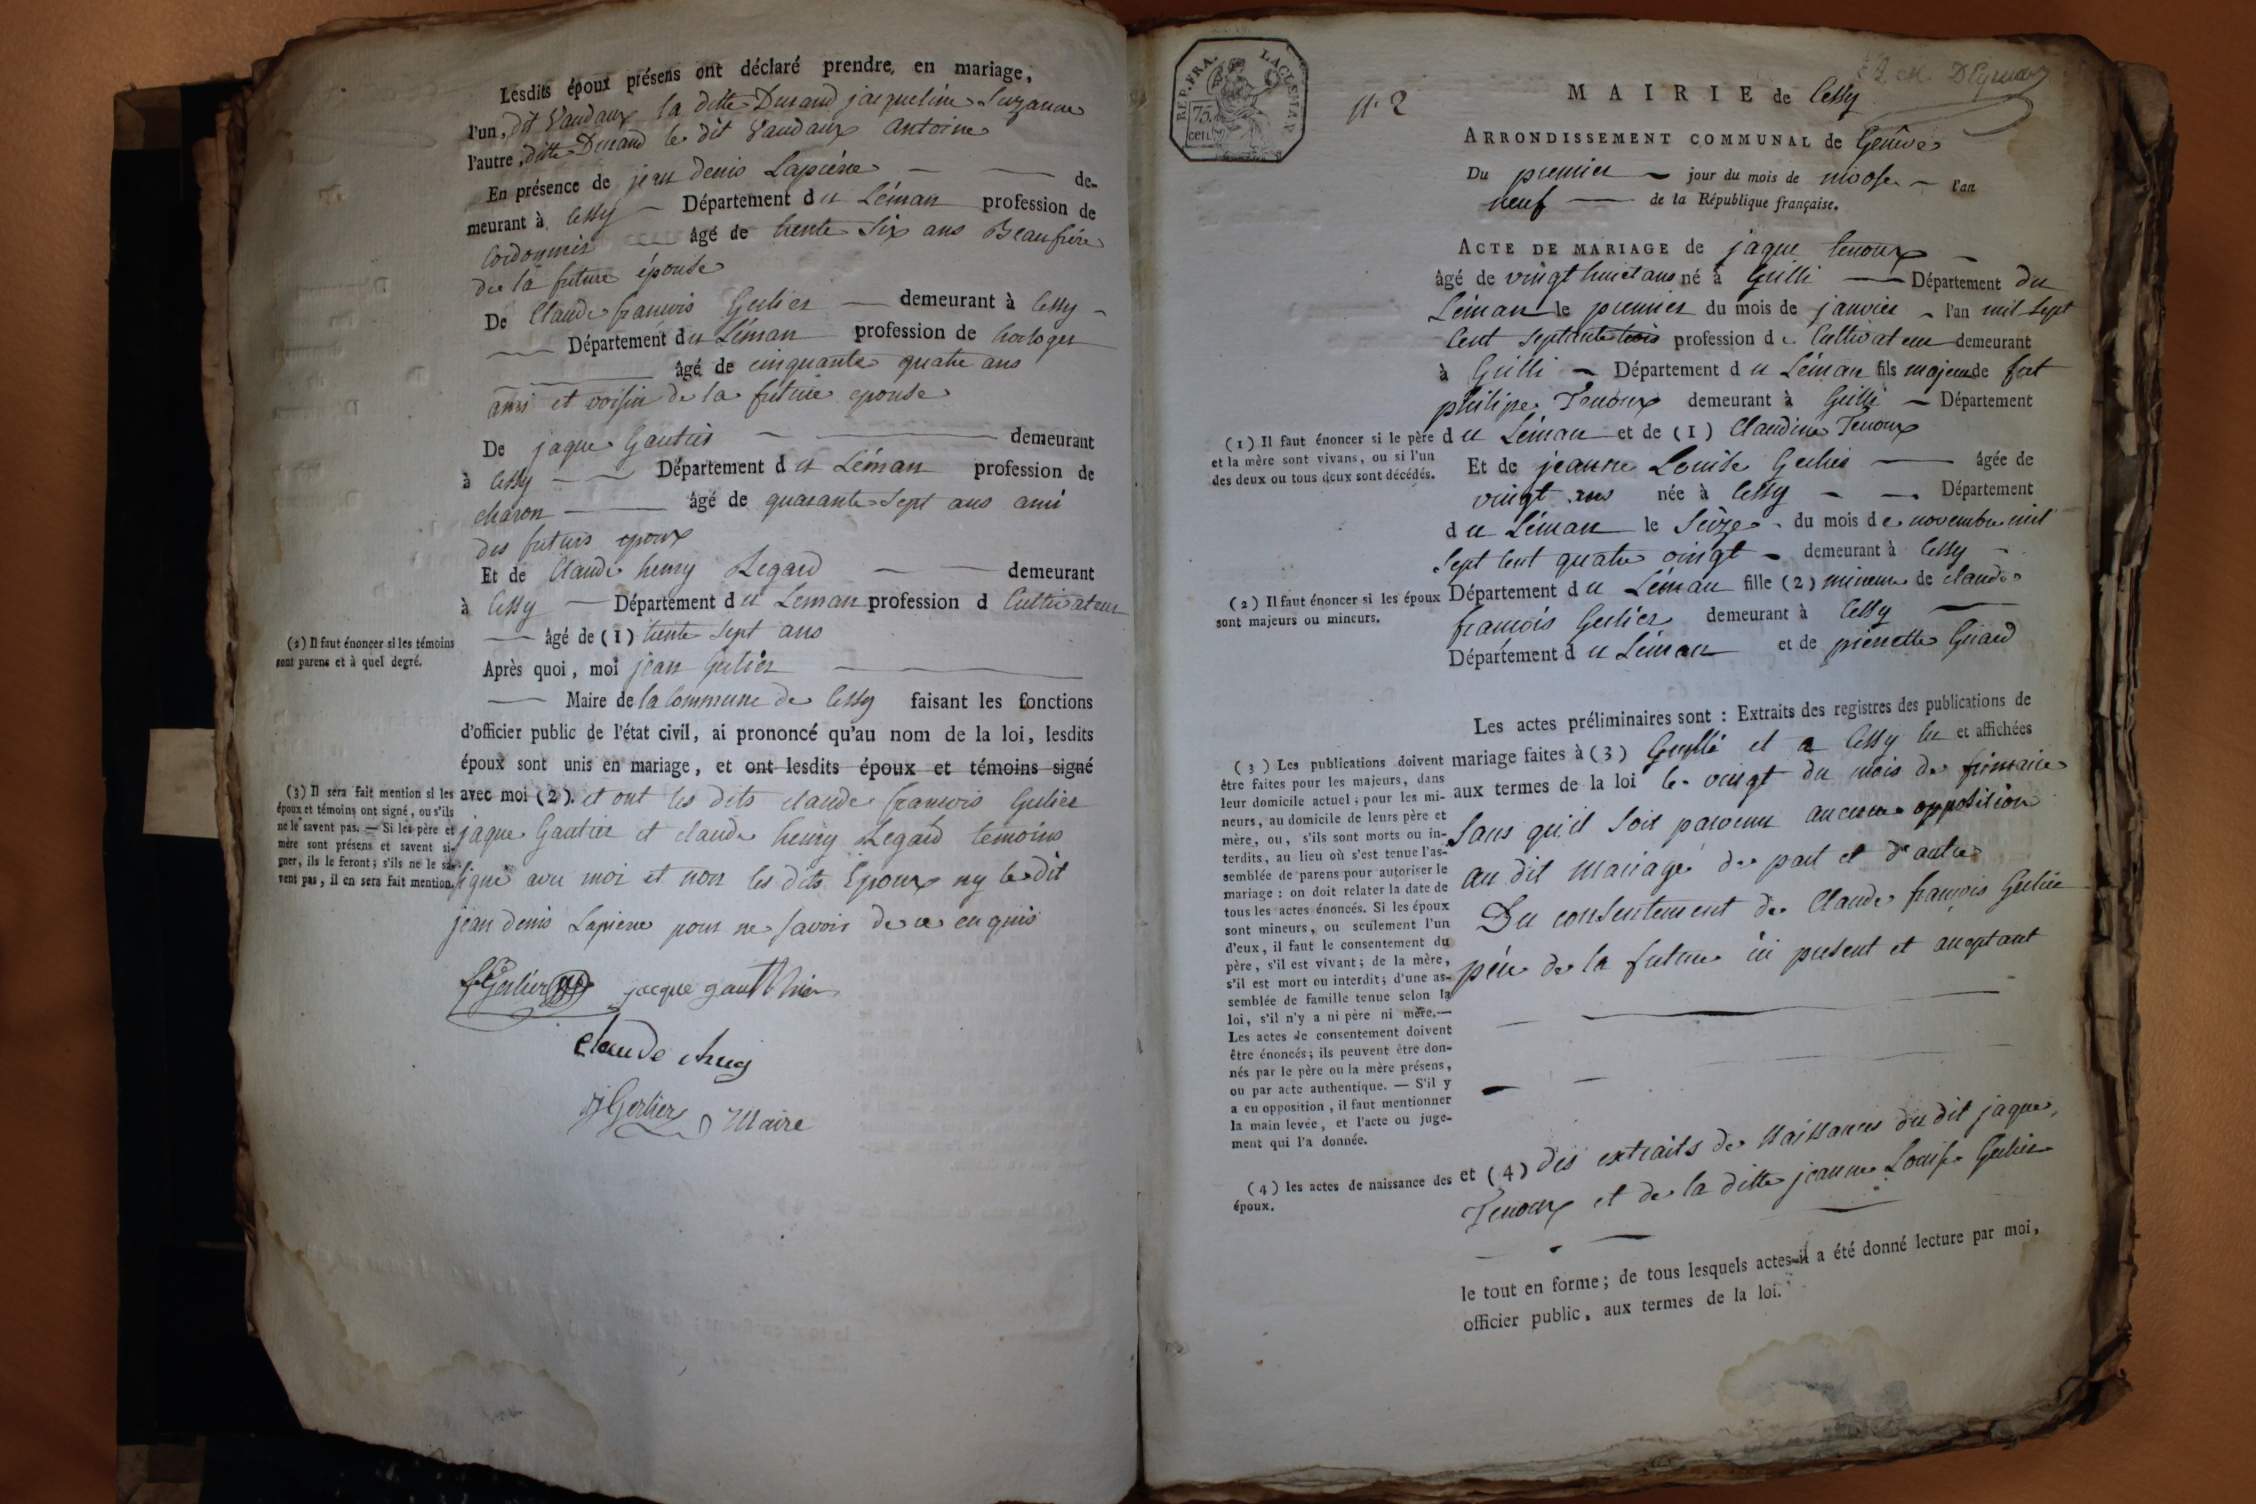 Lesdits époux présens ont déclaré prendre, en mariage,
l'un, dit Vandaux la ditte Durand jacqueline Suzanne
l'autre, ditte Durand le dit Vandaux antoine
En présence de jean denis Lapierre de-
meurant à Cessy Département du Léman profession de
Cordonnier âgé de trente Six ans Beaufrère
de la future épouse
De Claude françois Gerlier demeurant à Cessy
Département du Léman profession de horloger
âgé de cinquante quatre ans
ami et voisin de la future epouse
De jaque Gautier demeurant
à Cessy Département du Léman profession de
charon âgé de quarante Sept ans ami
des futurs epoux
Et de Claude henry Regard demeurant
à Cessy Département du Léman profession d Cultivateur
âgé de (1) trente Sept ans
Après quoi, moi jean Gerlier
Maire de la Commune de Cessy faisant les fonctions
d'officier public de l'état civil, ai prononcé qu'au nom de la loi, lesdits
époux sont unis en mariage, et ont lesdits époux et témoins signé
avec moi (2). et ont les dits claude françois Gerlier
jaque Gautier et claude henry Regard témoins
signé avec moi et non les dits Epoux ny le dit
jean denis Lapierre pour ne savoir de ce enquis
(2) Il faut énoncer si les témoins
sont parens et à quel degré.
(3) Il sera fait mention si les
époux et témoins ont signé, ou s'ils
ne le savent pas. — Si les père et
mère sont présens et savent si-
gner, ils le feront; s'ils ne le sa-
vent pas, il en sera fait mention.
Gerlier jacque gautthier
claude
Gerlier Maire
REP. FRA.
75.
cen.
N° 2
MAIRIE de Cessy
ARRONDISSEMENT COMMUNAL de Genève
Du premier jour du mois de nivose l'an
neuf de la République française.
ACTE DE MARIAGE de jaque Tenoux
âgé de vingt huit ans né à Grilli Département du
Léman le premier du mois de janvier l'an mil Sept
Cent Septante trois profession de Cultivateur demeurant
à Grilli Département du Léman fils majeur de feut
philipe Tenoux demeurant à Grilli Département
du Léman et de (1) Claudine Tenoux
Et de jeanne Louise Gerlier âgée de
vingt ans née à Cessy Département
du Léman le Seize du mois de novembre mil
Sept Cent quatre vingt demeurant à Cessy
Département du Léman fille (2) mineure de claude
françois Gerlier demeurant à Cessy
Département du Léman et de pierrette Girard
Les actes préliminaires sont : Extraits des registres des publications de
mariage faites à (3) Gryllé et a Cessy lu et affichées
aux termes de la loi le vingt du mois de frimaire
Sans qu'il Soit parvenu aucune opposition
au dit mariage de part et d'autre
Du consentement de Claude françois Gerlier
père de la future ici present et acceptant
et (4) des extraits de Naissances du dit jaque
Tenoux et de la ditte jeanne Louise Gerlier
le tout en forme; de tous lesquels actes il a été donné lecture par moi,
officier public, aux termes de la loi.
(1) Il faut énoncer si le père
et la mère sont vivans, ou si l'un
des deux ou tous deux sont décédés.
(2) Il faut énoncer si les époux
sont majeurs ou mineurs.
(3) Les publications doivent
être faites pour les majeurs, dans
leur domicile actuel; pour les mi-
neurs, au domicile de leurs père et
mère, ou, s'ils sont morts ou in-
terdits, au lieu où s'est tenue l'as-
semblée de parens pour autoriser le
mariage : on doit relater la date de
tous les actes énoncés. Si les époux
sont mineurs, ou seulement l'un
d'eux, il faut le consentement du
père, s'il est vivant; de la mère,
s'il est mort ou interdit; d'une as-
semblée de famille tenue selon la
loi, s'il n'y a ni père ni mère.—
Les actes de consentement doivent
être énoncés; ils peuvent être don-
nés par le père ou la mère présens,
ou par acte authentique. — S'il y
a eu opposition, il faut mentionner
la main levée, et l'acte ou juge-
ment qui l'a donnée.
(4) les actes de naissance des
époux.